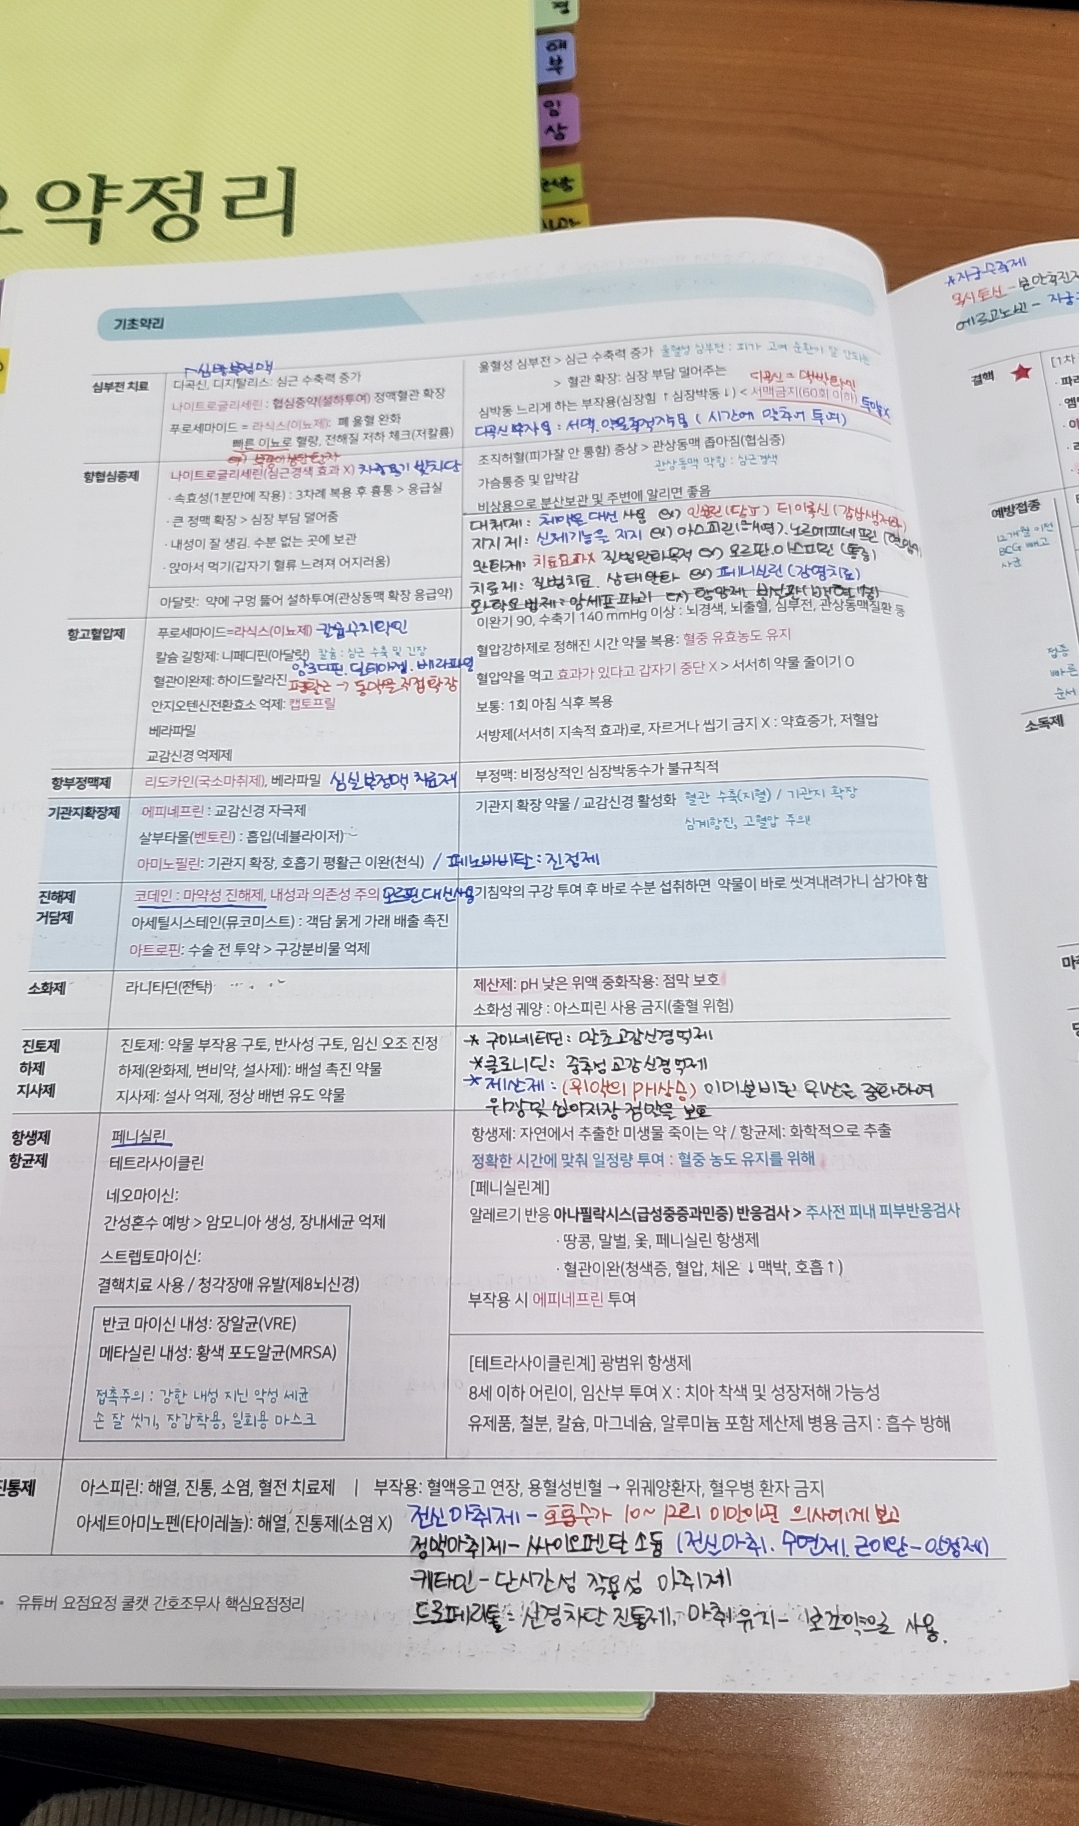 요약정리
해부
임상
기초약리
심부전 치료
디곡신, 디지탈리스: 심근 수축력 증가
나이트로글리세린 : 협심증약(설하투여) 정맥혈관 확장
푸로세마이드 = 라식스(이뇨제): 폐 울혈 완화
빠른 이뇨로 혈량, 전해질 저하 체크(저칼륨)
울혈성 심부전 > 심근 수축력 증가 울혈성 심부전 : 피가 고여 순환이 잘 안되는
> 혈관 확장: 심장 부담 덜어주는
심박동 느리게 하는 부작용(심장힘 ↑ 심장박동↓) < 서맥금지(60회 이하) 투약X
디곡신 부작용 : 서맥, 약물축적작용 ( 시간에 맞추어 투여)
항협심증제
나이트로글리세린(심근경색 효과 X) 차광용기
· 속효성(1분만에 작용) : 3차례 복용 후 흉통 > 응급실
· 큰 정맥 확장 > 심장 부담 덜어줌
· 내성이 잘 생김. 수분 없는 곳에 보관
· 앉아서 먹기(갑자기 혈류 느려져 어지러움)
아달랏: 약에 구멍 뚫어 설하투여(관상동맥 확장 응급약)
조직허혈(피가잘 안 통함) 증상 > 관상동맥 좁아짐(협심증)
관상동맥 막힘 : 심근경색
가슴통증 및 압박감
비상용으로 분산보관 및 주변에 알리면 좋음
대치제 : 체액물 대신 사용 ex) 인슐린(당뇨) 티이록신 (갑상생저하)
지지제 : 신체기능을 지지 ex) 아스피린(해열), 노르에피네프린
완화제: 치료효과X 질병완화목적 ex) 모르핀, 아스피린 (통증)
치료제: 질병치료, 상태완화 ex) 페니실린 (감염치료)
화학요법제 : 암세포파괴 ex) 항암제,
항고혈압제
푸로세마이드=라식스(이뇨제)
칼슘 길항제: 니페디핀(아달랏) 칼슘 : 심근 수축 및 긴장
암로디핀, 딜티아젬, 베라파밀
혈관이완제: 하이드랄라진 평활근 → 동맥을 직접확장
안지오텐신전환효소 억제: 캡토프릴
베라파밀
교감신경 억제제
이완기 90, 수축기 140 mmHg 이상 : 뇌경색, 뇌출혈, 심부전, 관상동맥질환 등
혈압강하제로 정해진 시간 약물 복용: 혈중 유효농도 유지
혈압약을 먹고 효과가 있다고 갑자기 중단 X > 서서히 약물 줄이기 O
보통: 1회 아침 식후 복용
서방제(서서히 지속적 효과)로, 자르거나 씹기 금지 X : 약효증가, 저혈압
항부정맥제
리도카인(국소마취제), 베라파밀 심실부정맥 치료제
부정맥: 비정상적인 심장박동수가 불규칙적
기관지확장제
에피네프린 : 교감신경 자극제
살부타몰(벤토린) : 흡입(네뷸라이저)
아미노필린: 기관지 확장, 호흡기 평활근 이완(천식) / 페노바비탈 : 진정제
기관지 확장 약물 / 교감신경 활성화 혈관 수축(지혈) / 기관지 확장
심계항진, 고혈압 주의!
진해제
거담제
코데인 : 마약성 진해제, 내성과 의존성 주의 모르핀 대신사용
아세틸시스테인(뮤코미스트) : 객담 묽게 가래 배출 촉진
아트로핀: 수술 전 투약 > 구강분비물 억제
기침약의 구강 투여 후 바로 수분 섭취하면 약물이 바로 씻겨내려가니 삼가야 함
소화제
라니티딘(잔탁)
제산제: pH 낮은 위액 중화작용: 점막 보호
소화성 궤양 : 아스피린 사용 금지(출혈 위험)
진토제
하제
지사제
진토제: 약물 부작용 구토, 반사성 구토, 임신 오조 진정
하제(완화제, 변비약, 설사제): 배설 촉진 약물
지사제: 설사 억제, 정상 배변 유도 약물
* 구아네티딘 : 말초교감신경억제
* 클로니딘 : 중추성 교감신경 억제
* 제산제 : (위액의 PH상승) 이미분비된 위산을 중화하여
위장및 십이지장 점막을 보호
항생제
항균제
페니실린
테트라사이클린
네오마이신:
간성혼수 예방 > 암모니아 생성, 장내세균 억제
스트렙토마이신:
결핵치료 사용 / 청각장애 유발(제8뇌신경)
반코 마이신 내성: 장알균(VRE)
메타실린 내성: 황색 포도알균(MRSA)
접촉주의 : 강한 내성 지닌 악성 세균
손 잘 씻기, 장갑착용, 일회용 마스크
항생제: 자연에서 추출한 미생물 죽이는 약 / 항균제: 화학적으로 추출
정확한 시간에 맞춰 일정량 투여 : 혈중 농도 유지를 위해
[페니실린계]
알레르기 반응 아나필락시스(급성중증과민증) 반응검사 > 주사전 피내 피부반응검사
· 땅콩, 말벌, 옻, 페니실린 항생제
· 혈관이완(청색증, 혈압, 체온 ↓ 맥박, 호흡↑)
부작용 시 에피네프린 투여
[테트라사이클린계] 광범위 항생제
8세 이하 어린이, 임산부 투여 X : 치아 착색 및 성장저해 가능성
유제품, 철분, 칼슘, 마그네슘, 알루미늄 포함 제산제 병용 금지 : 흡수 방해
진통제
아스피린: 해열, 진통, 소염, 혈전 치료제 | 부작용: 혈액응고 연장, 용혈성빈혈 → 위궤양환자, 혈우병 환자 금지
아세트아미노펜(타이레놀): 해열, 진통제(소염 X)
전신마취제 - 호흡수가 10~12회 미만이면 의사에게 보고
정맥마취제 - 싸이오펜탈 소듐 (전신마취, 수면제, 근이완-안정제)
케타민 - 단시간성 작용성 마취제
드로페리돌 : 신경차단 진통제, 마취유지 - 보조약으로 사용.
유튜버 요점요정 쿨캣 간호조무사 핵심요점정리
*자궁수축제
옥시토신 - 분만촉진제
에르고노빈 - 자궁
결핵
[1차
예방접종
12개월 이전
BCG 빼고
사균
접종
빠른
순서
소독제